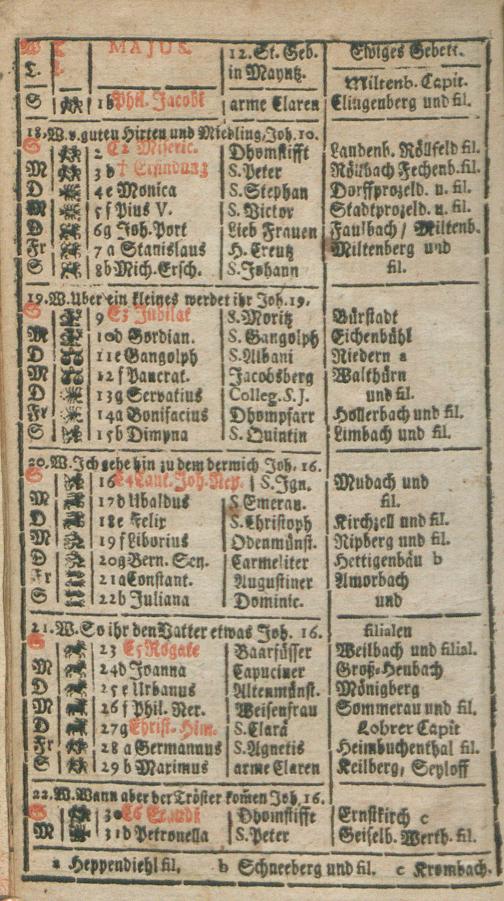 W L. MAJUS. 12. St. Geb. Ewiges Gebett.
T. L. in Mayntz.
Miltenb. Capit.
S 1b Phil. Jacobi arme Claren Clingenberg und fil.
18. W. v. guten Hirten und Miedling, Joh. 10.
S 2 C2 Miseric. Dhomstifft Landenb. Röllfeld fil.
M 3b † Erfindung S. Peter Röllbach Fechenb. fil.
D 4e Monica S. Stephan Dorffprozeld. u. fil.
M 5f Pius V. S. Victor Stadtprozeld. u. fil.
D 6g Joh. Port Lieb Frauen Faulbach / Miltenb.
Fr 7a Stanislaus H. Creutz Miltenberg und
S 8b Mich. Ersch. S. Johann fil.
19. W. Uber ein kleines werdet ihr Joh. 19.
S 9 E3 Jubilat S. Moritz Bürstadt
M 10d Gordian. S. Gangolph Eichenbühl
D 11e Gangolph S. Albani Niedern a
M 12f Pancrat. Jacobsberg Walthürn
D 13g Servatius Colleg. S. J. und fil.
Fr 14a Bonifacius Dhompfarr Hollerbach und fil.
S 15b Dimpna S. Quintin Limbach und fil.
20. W. Ich gehe hin zu dem der mich Joh. 16.
S 16 E4 Cant. Joh. Nep. S. Ign. Mudach und
M 17d Ubaldus S. Emeran. fil.
D 18e Felix S. Christoph Kirchzell und fil.
M 19f Liborius Odenmünst. Ripberg und fil.
D 20g Bern. Sen. Carmeliter Hettigenbäu b
Fr 21a Constant. Augustiner Amorbach
S 22b Juliana Dominic. und
21. W. So ihr den Vatter etwas Joh. 16. filialen
S 23 E5 Rogate Baarfüsser Weilbach und filial.
M 24d Joanna Capuciner Groß-Heubach
D 25e Urbanus Altenmünst. Mönigberg
M 26f Phil. Ner. Weisenfrau Sommerau und fil.
D 27g Christ. Him. S. Clara Lohrer Capit
Fr 28a Germannus S. Agnetis Heimbuchenthal fil.
S 29b Maximus arme Claren Keilberg, Seyloff
22. W. Wann aber der Tröster komen Joh. 16.
S 30 E6 Exaudi Dhomstifft Ernstkirch c
M 31d Petronella S. Peter Geiselb. Werth. fil.
a Heppendiehl fil. b Schneeberg und fil. c Krombach.